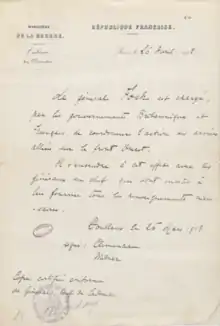 MINISTÈRE
DE LA GUERRE
RÉPUBLIQUE FRANÇAISE
Le général Foch est chargé
par les gouvernements Britannique et
Français de coordonner l'action des armées
alliées sur le front Ouest.
Il s'entendra à cet effet avec les
généraux en chef qui sont invités à
lui fournir tous les renseignements néces-
saires.
Doullens le 26 Mars 1918
signé: Clemenceau
Milner
Copie certifiée conforme